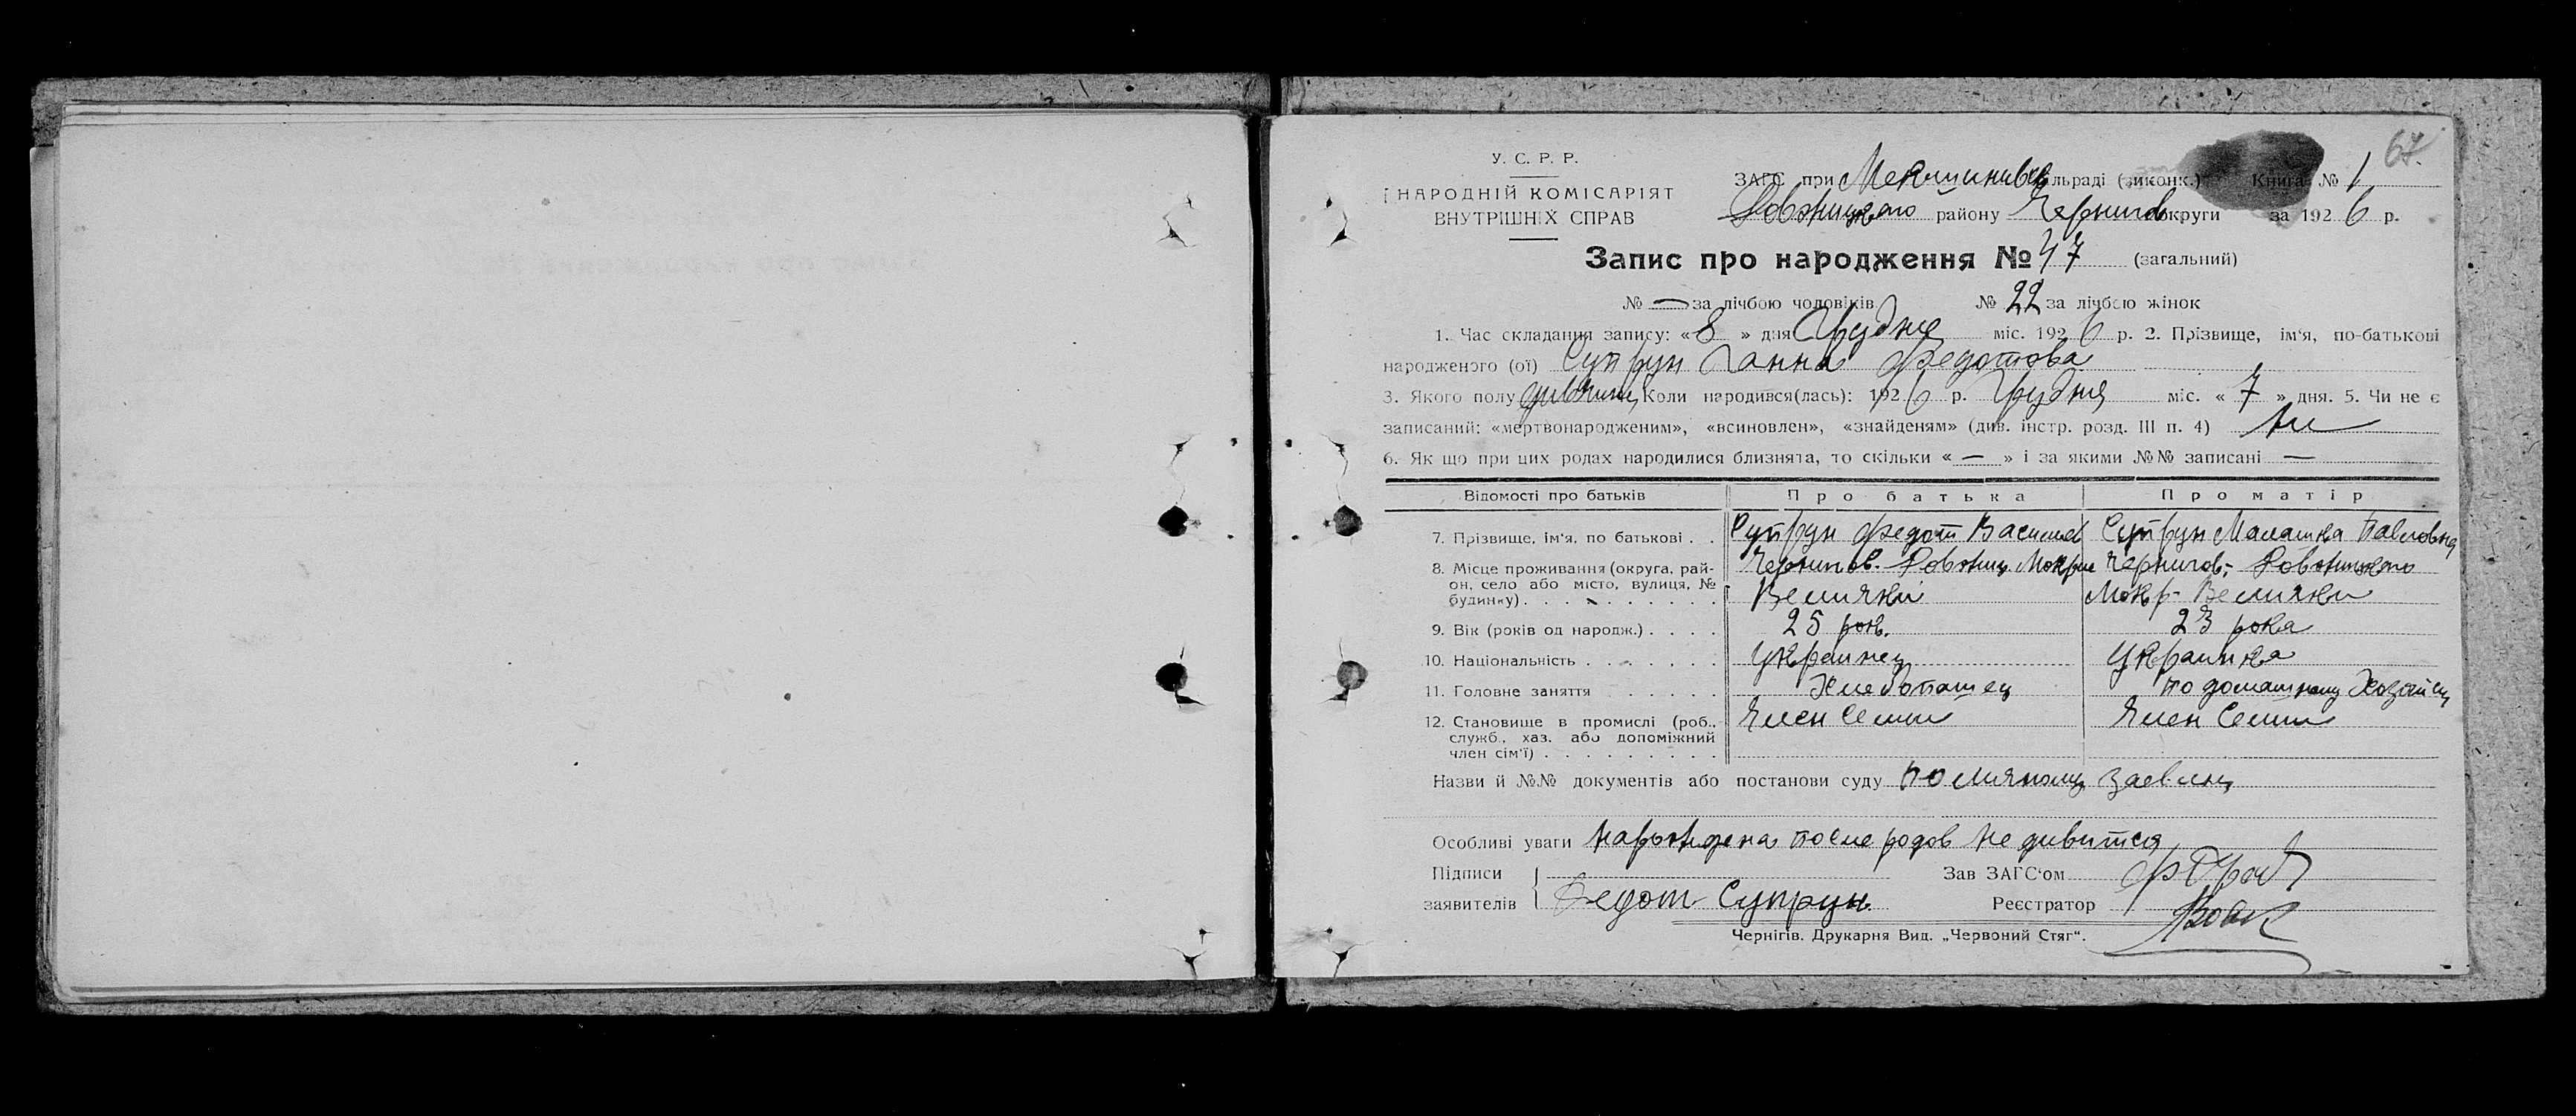 67.
У. С. Р. Р.
НАРОДНІЙ КОМІСАРІЯТ
ВНУТРІШНІХ СПРАВ
ЗАГС при сільраді (виконк.) Книга № 1
району Чернигов округи за 1926 р.
Запис про народження № 47 (загальний)
№ — за лічбою чоловіків № 22 за лічбою жінок
1. Час складання запису: «8» дня Грудня міс. 1926 р. 2. Прізвище, ім'я, по-батькові
народженого (ої) Супрун Ганна Федотова
3. Якого полу Коли народився(лась): 1926 р. Грудня міс. «7» дня. 5. Чи не є
записаний: «мертвонародженим», «всиновлен», «знайденям» (див. інстр. розд. III п. 4) Ни
6. Як що при цих родах народилися близнята, то скільки «—» і за якими №№ записані —
Відомості про батьків Про батька Про матір
7. Прізвище, ім'я, по батькові . . Супрун Федот Васильев Супрун Малашка Павловна
8. Місце проживання (округа, рай-
он, село або місто, вулиця, №
будинку) . . . . . . . . . .
Чернигов. Ровжиц. Мокрие
Велички
Чернигов.
Мокр. Велички
9. Вік (років од народж.) . . . . 25 рок. 23 рока
10. Національність . . . . . . . Украинец Украинка
11. Головне заняття . . . . . Хлебопашец по домашному
12. Становище в промислі (роб.,
служб., хаз. або допоміжний
член сім'ї) . . . . . . . . .
Член Семии Член Семии
Назви й №№ документів або постанови суду По
Особливі уваги после родов не дивится
Підписи
заявителів Федот Супрун
Зав ЗАГС'ом
Реєстратор
Чернігів. Друкарня Вид. „Червоний Стяг“.